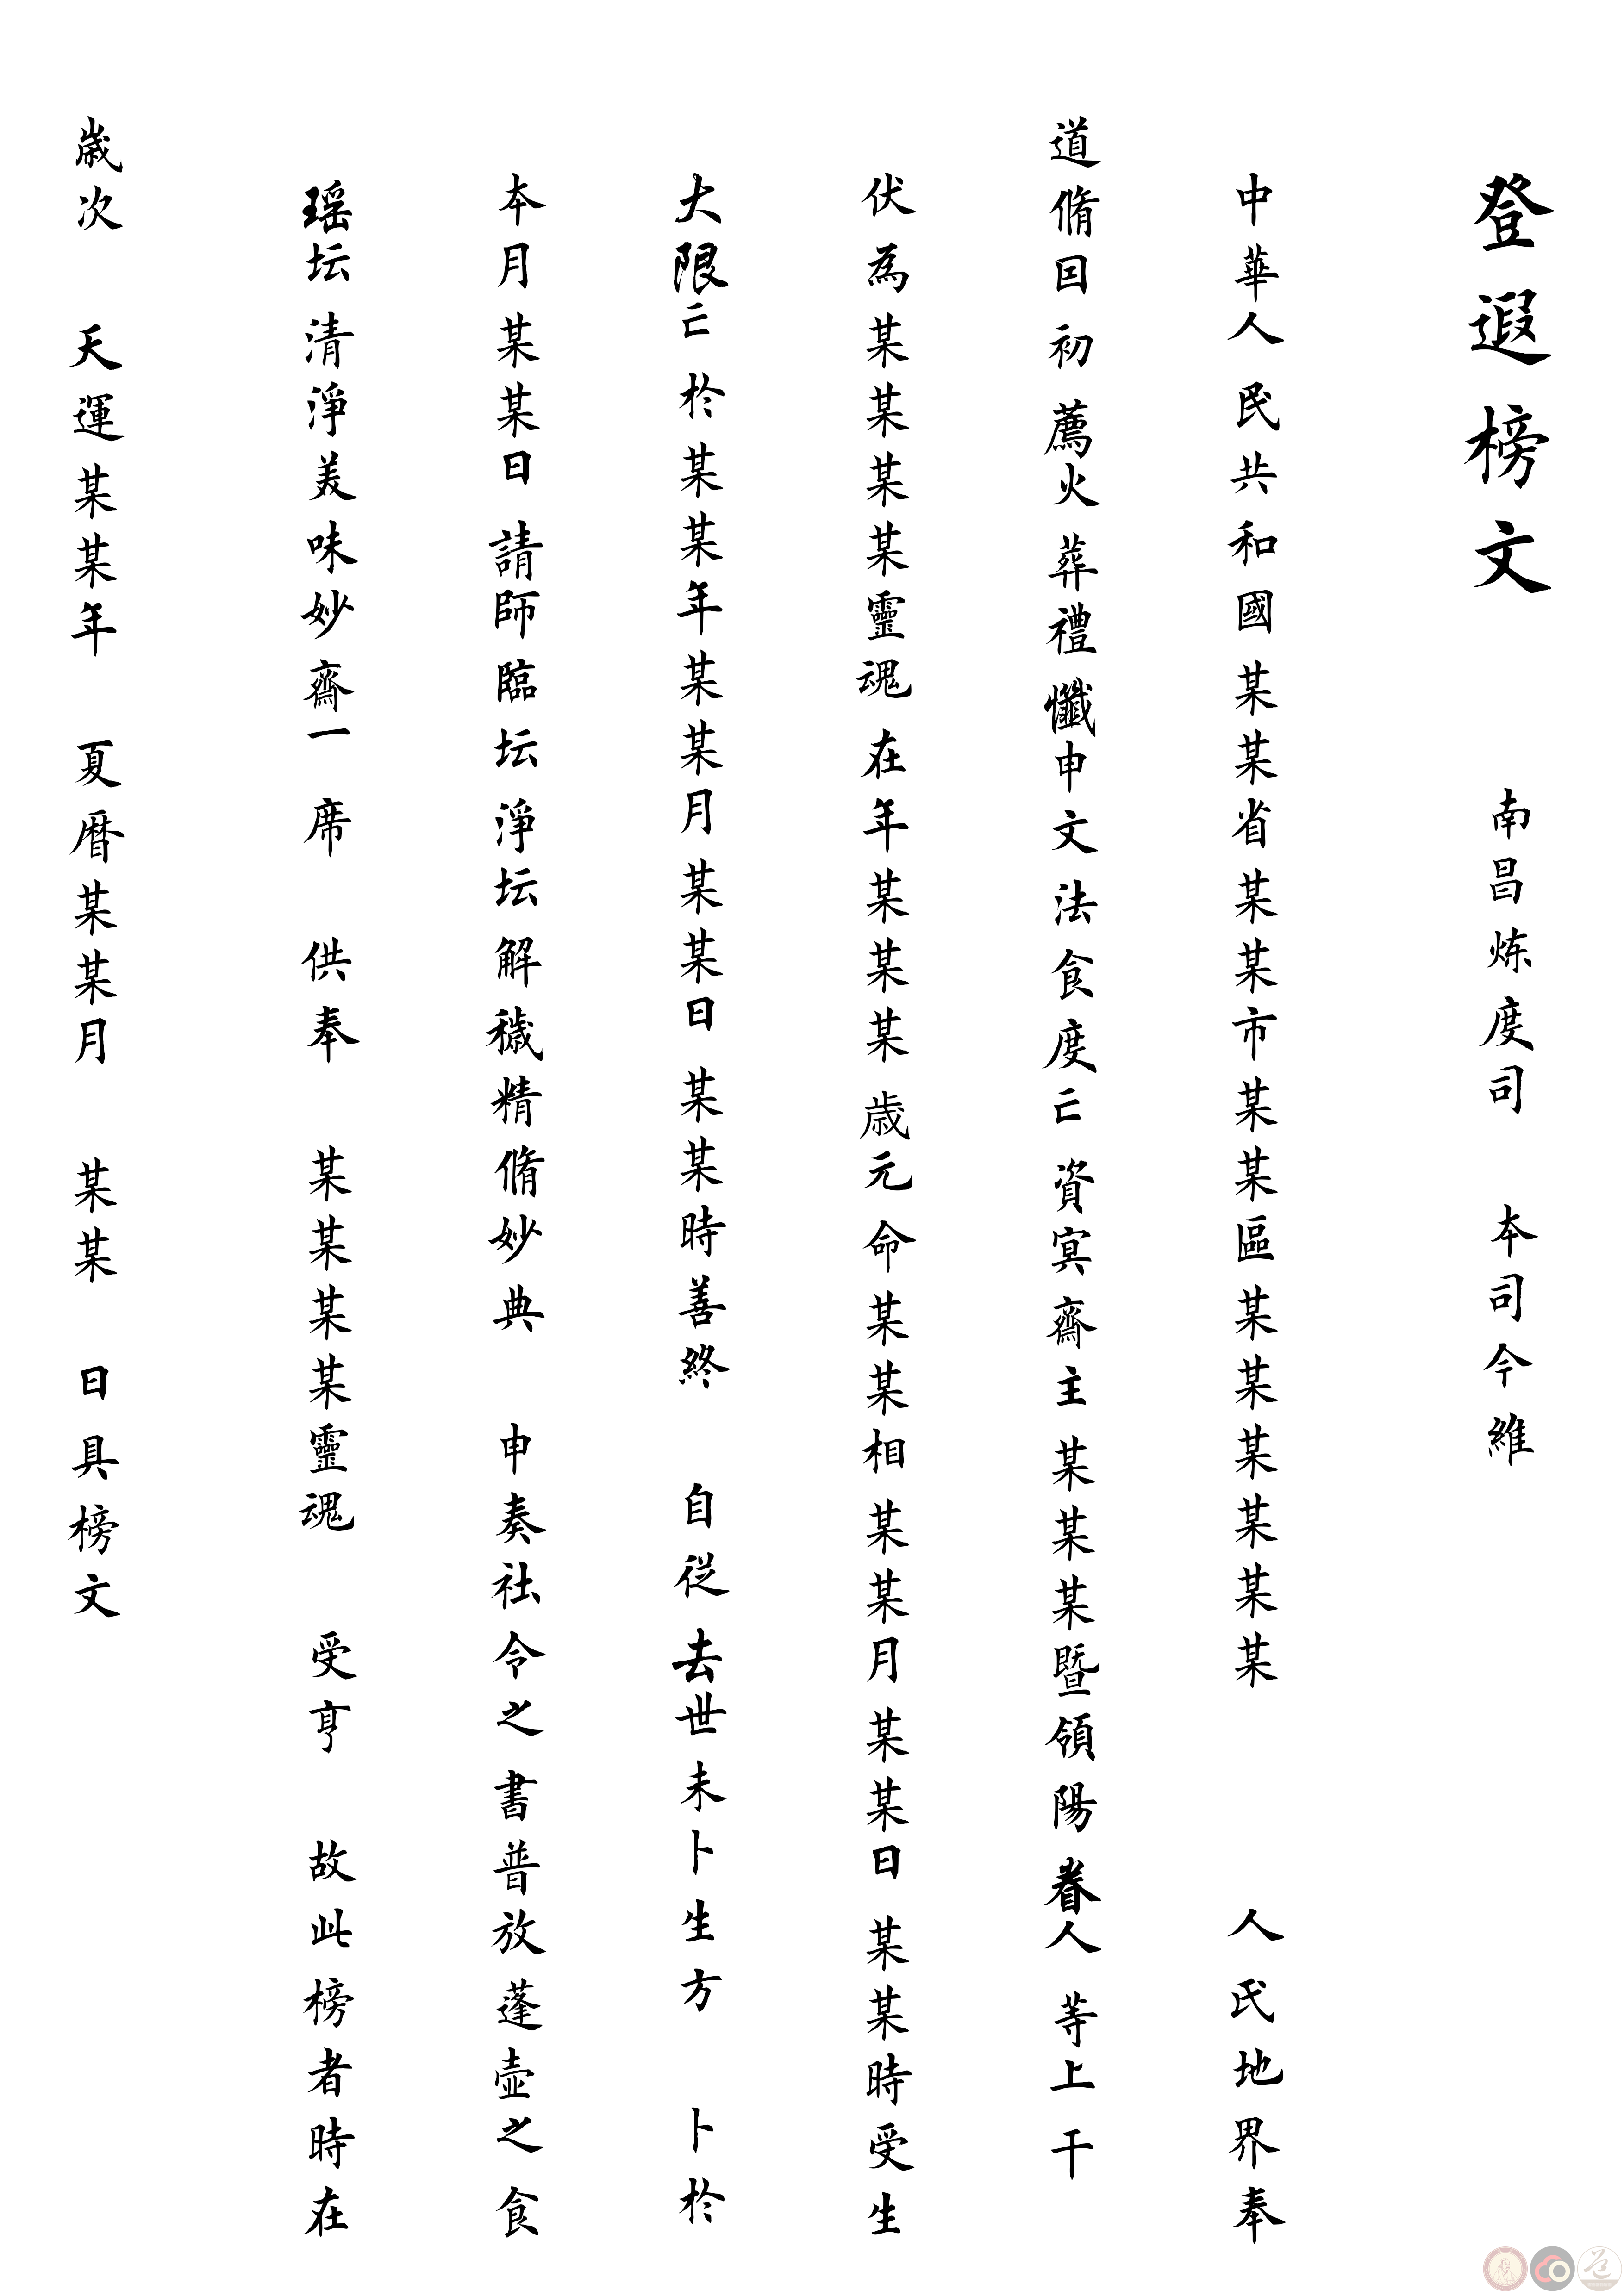 登遐榜文 南昌炼度司 本司今維
中華人民共和國某某省某某市某某區某某某某某某 人民地界奉
道脩囙初薦火葬禮懺申文法食度亡資㝠齋主某某某暨領陽眷人等上干
伏為某某某某靈魂在年某某某歳元命某某相某某月某某日某某時受生
大限亡於某某年某某月某某日某某時善終 自従去世未卜生方 卜於
本月某某日請師臨坛淨坛解穢精脩妙典 申奏社令之書普放蓬壺之食
瑶坛清淨美味妙齋一席 供奉 某某某某靈魂 受亨 故此榜者時在
歲次 天運某某年 夏暦某某月 某某 日具榜文